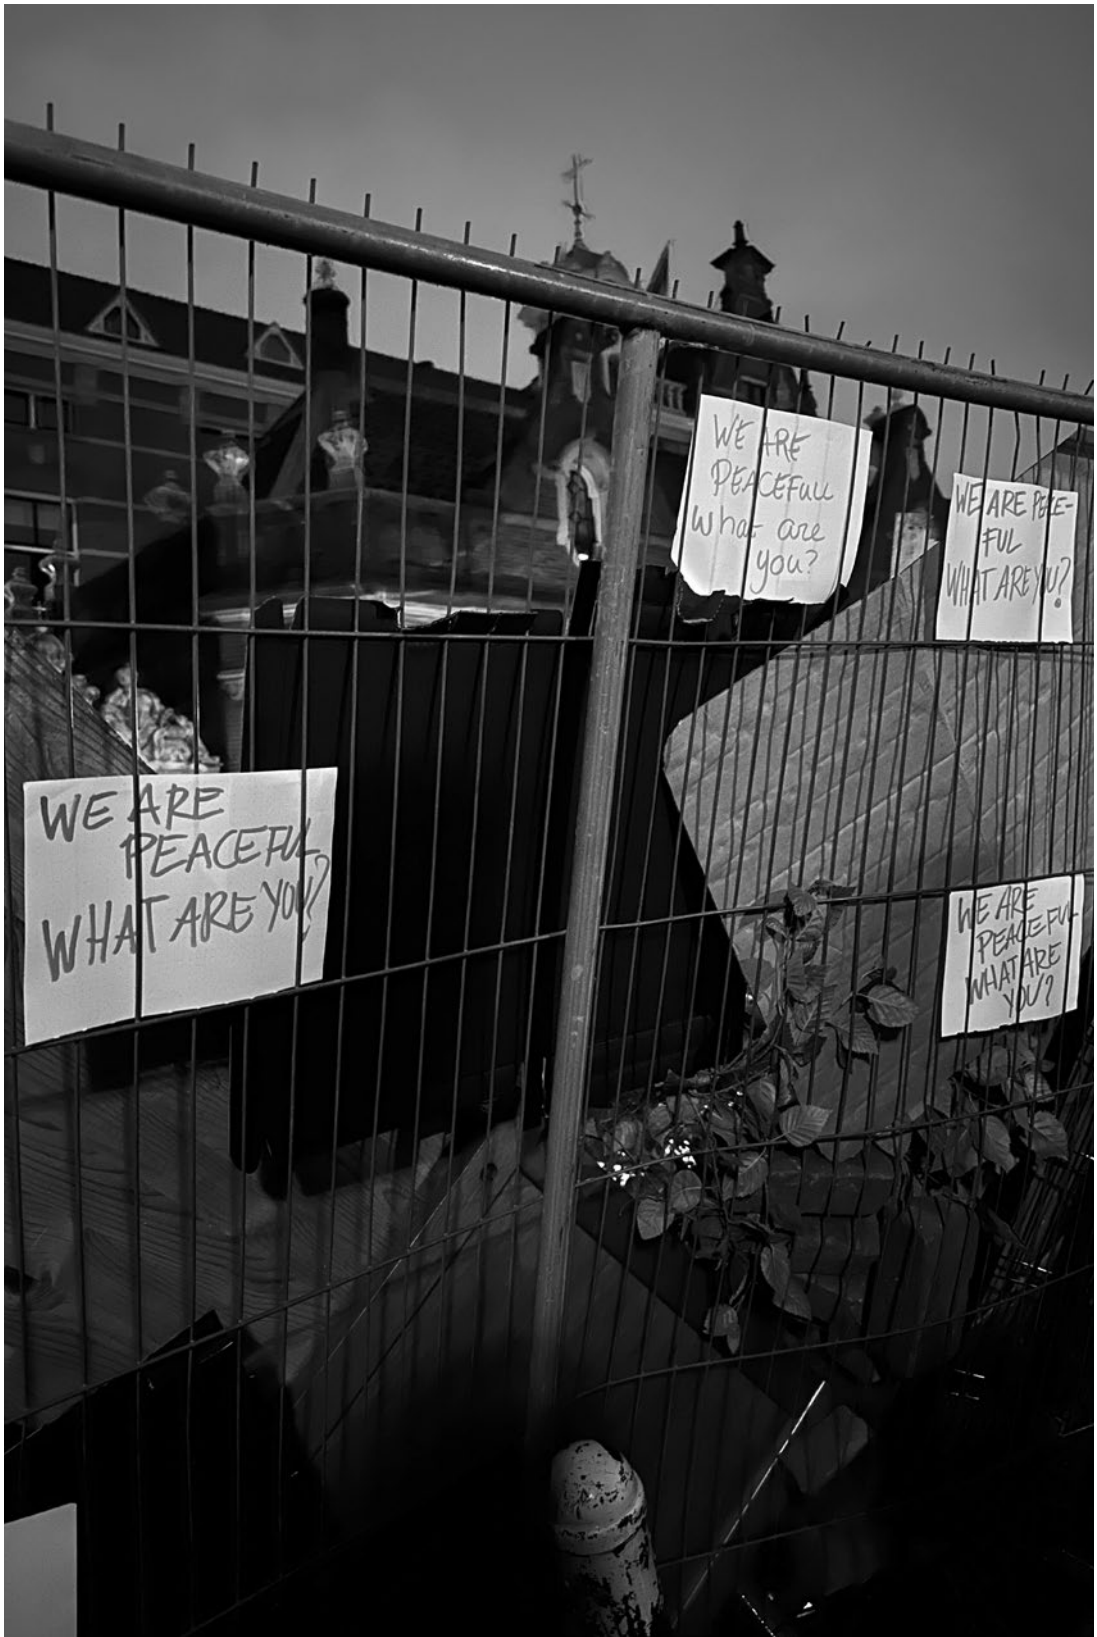 WE ARE
PEACEFULL
What are
you?
WE ARE PEACE-
FUL
WHAT ARE YOU?
WE ARE
PEACEFUL,
WHAT ARE YOU?
WE ARE
PEACEFUL
WHAT ARE
YOU?